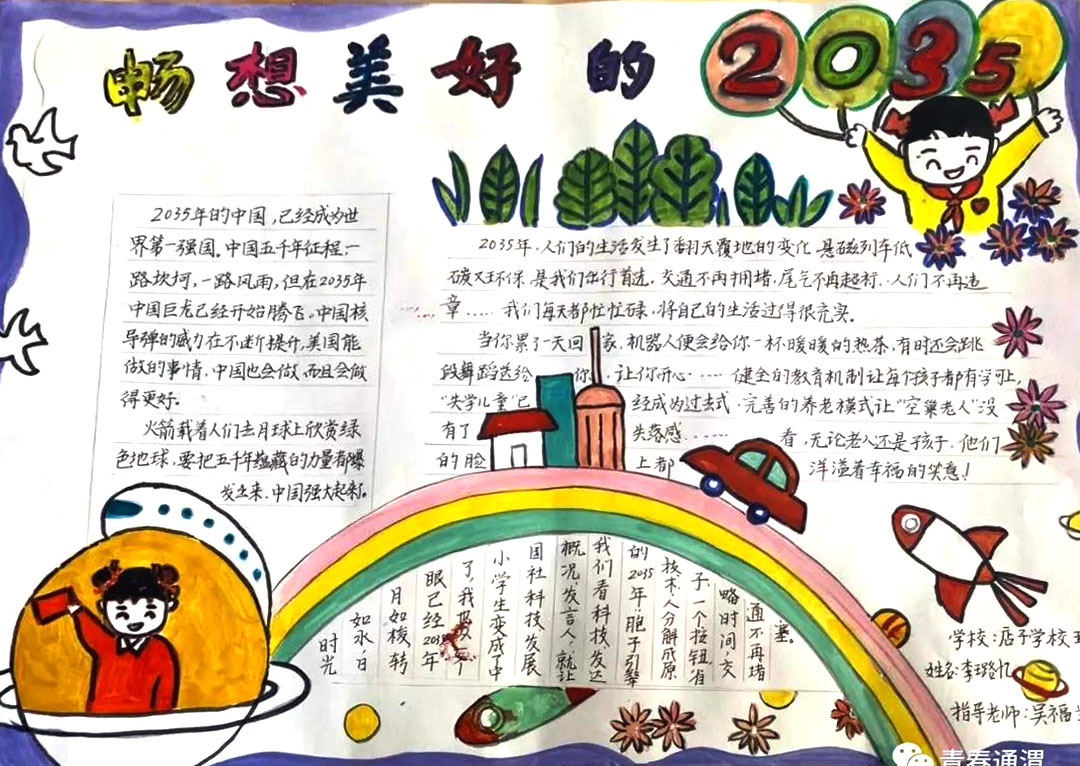 畅想美好的2035
2035年的中国,已经成为世
界第一强国。中国五千年征程,一
路坎坷,一路风雨,但在2035年
中国巨龙已经开始腾飞。中国核
导弹的威力在不断提升,美国能
做的事情,中国也会做,而且会做
得更好。
火箭载着人们去月球上欣赏绿
色地球,要把五千年蕴藏的力量都爆
发出来,中国强大起来。
2035年,人们的生活发生了翻天覆地的变化,悬磁列车低
碳又环保,是我们出行首选,交通不再拥堵,尾气不再超标,人们不再违
章……我们每天都忙忙碌碌,将自己的生活过得很充实。
当你累了一天回家,机器人便会给你一杯暖暖的热茶,有时还会跳
段舞蹈送给你,让你开心……健全的教育机制让每个孩子都有学可上,
"失学儿童"已经成为过去式,完善的养老模式让"空巢老人"没
有了失落感……看,无论老人还是孩子,他们
的脸上都洋溢着幸福的笑意!
时光
如水,日
月如梭,转
眼已经2035年
了,我
小学生变成了中
国社科技发展
概况发言人,就让
我们看科技发达
的2035年!胞子引擎
技术,人分解成原
子,一个按钮,省
略时间,交
通不再堵
塞。
学校:店子学校
姓名:李
指导老师:吴福
青春通渭